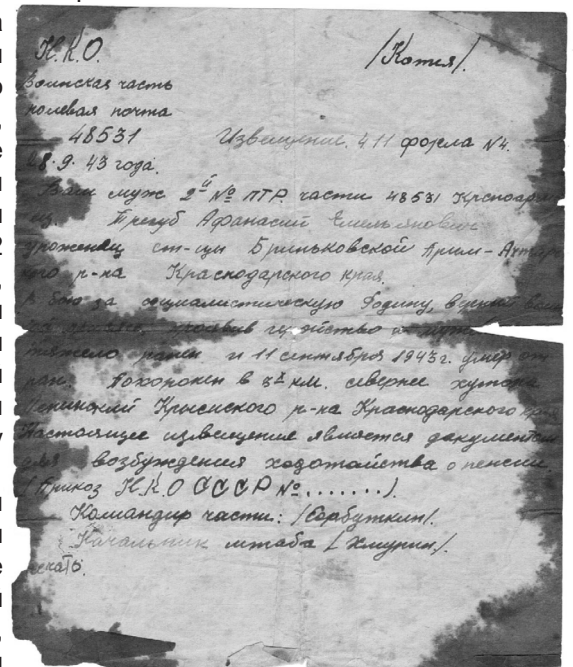 Н.К.О. /Копия/.
Воинская часть
полевая почта
48531 Извещение. 411 форма №4.
28.9.43 года.
Ваш муж 2й № ПТР. части 48531
Трегуб Афанасий Емельянович
уроженец ст-цы Бриньковской Прим-Ахтар
р-на Краснодарского края.
В бою за социалистическую Родину,
проявив геройство и
тяжело ранен и 11 сентября 1943г. умер от
ран. Похоронен в 3х км. севернее хутора
Ленинский Крымского р-на Краснодарского края
Настоящее извещение является документом
для возбуждения ходотайства о пенсии.
(Приказ Н.К.О СССР №.......).
Командир части: /Сорбуткин/.
Начальник штаба /Хмурин/.
печать.